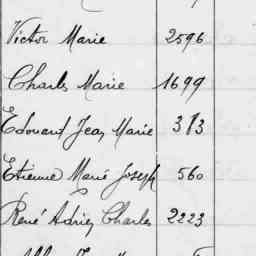 Victor Marie 2596
Charles Marie 1699
Edouard Jean Marie 313
Etienne Marie Joseph 560
René Adrien Charles 2223